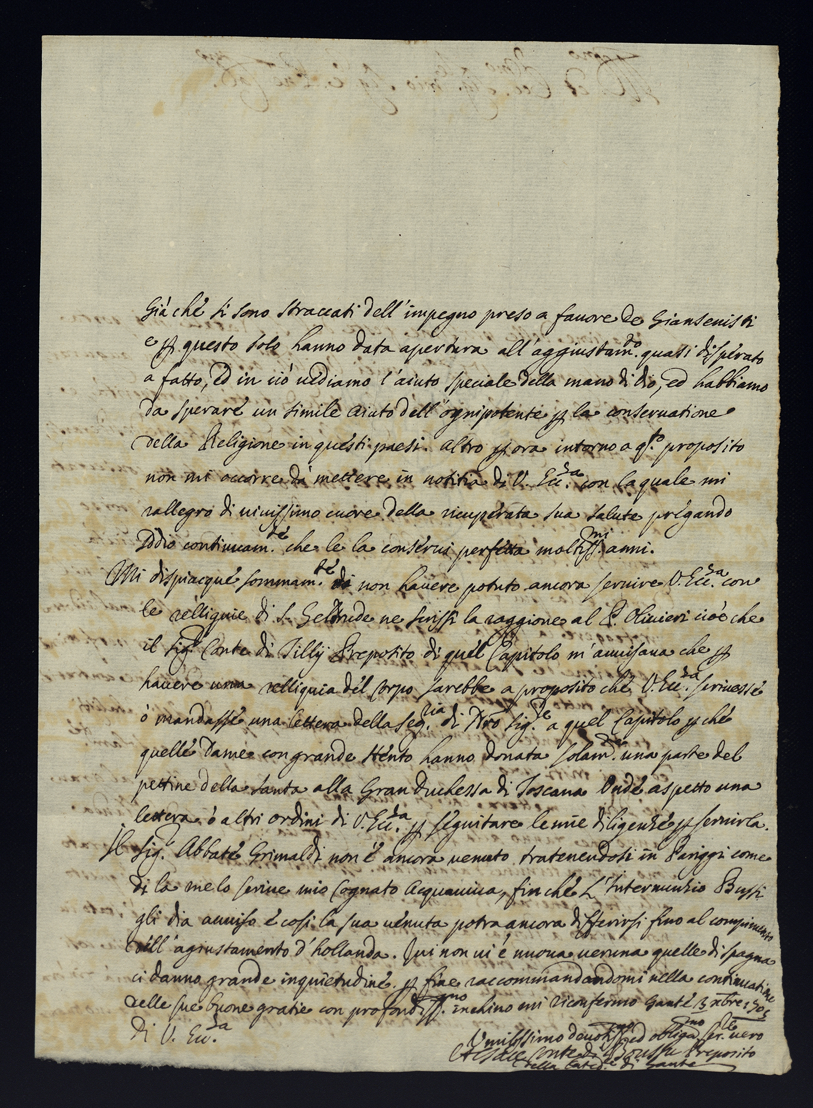 Già che si sono straccati dell'impegno preso a favore de Giansenisti
e p questo solo hanno data apertura all'aggiustam.to quasi disperato
a fatto, ed in ciò vediamo l'aiuto speciale della mano di dio, ed habbiamo
da sperare un simile aiuto dell'ognipotente p la conservatione
della Religione in questi paesi. altro p ora intorno a q.to proposito
non mi occorre da mettere in notitia di V. Ecc.za con la quale mi
rallegro di vivissimo cuore della ricuperata sua salute pregando
Iddio continuam.te che le la conservi perfetta moltiss.mi anni.
Mi dispiacque sommam.te di non havere potuto ancora servire V. Ecc.za con
le relliquie di S. Geltrude ne scrissi la raggione al P. Olivieri cioè che
il Sig.r Conte di Tilly Preposito di quel Capitolo m'avvisava che p
havere una relliquia del corpo sarebbe a proposito che V. Ecc.za scrivesse
ò mandasse una lettera della Seg.ria di Stto Sig.e a quel Capitolo p chè
quelle Dame con grande stento hanno donata solam.te una parte del
pettine della santa alla Gran Duchessa di Toscana Onde aspetto una
lettera ò altri ordini di V. Ecc.za p seguitare le mie diligenze p servirla.
Il Sig.r Abbate Grimaldi non è ancora venuto, tratenendosi in Pariggi come
di la me lo scrive mio Cognato Acquaviva, finchè L'Internunzio Bussi
gli dia avviso e così la sua venuta potra ancora differirsi fino al compimento
dell'agiustamento d'hollanda. Qui non vi è nuova veruna quelle di spagna
ci danno grande inquietudine p fine raccommandandomi nella continuatine
delle sue buone gratie con profondiss.mo inchino mi riconfermo Gante 13 xbre 1705
di V. Ecc.za
Umilissimo devotis.mo ed obliga.mo ser.le vero
Conte di Preposito
della Cated.le di Gante